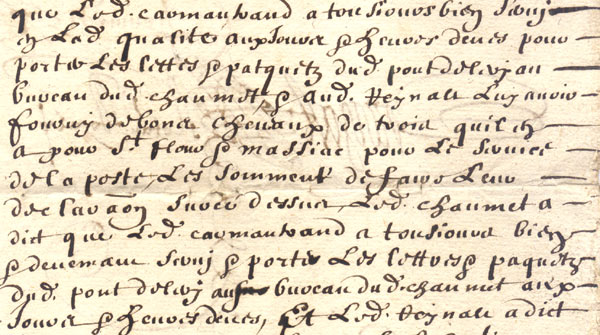 que led. carmantrand a tousiours bien servi
en lad. qualite aux jours & heures deues pour
porter les lettes & patquetz dud. pont de lery au
bureau dud. chaumet & aud. Reynal luy avoir
fourny de bons chevaux de trois quil en
a pour St flour & massiac pour le service
de la poste, les somment de faire leur
declaraon sur ce dessus, led. chaumet a
dict que led. carmantrand a tousiours bien
& deuemant servy & porte les lettres & paquetz
dud. pont de lery au bureau dud. chaumet aux
jours & heures deues, Et led. Reynal a dict